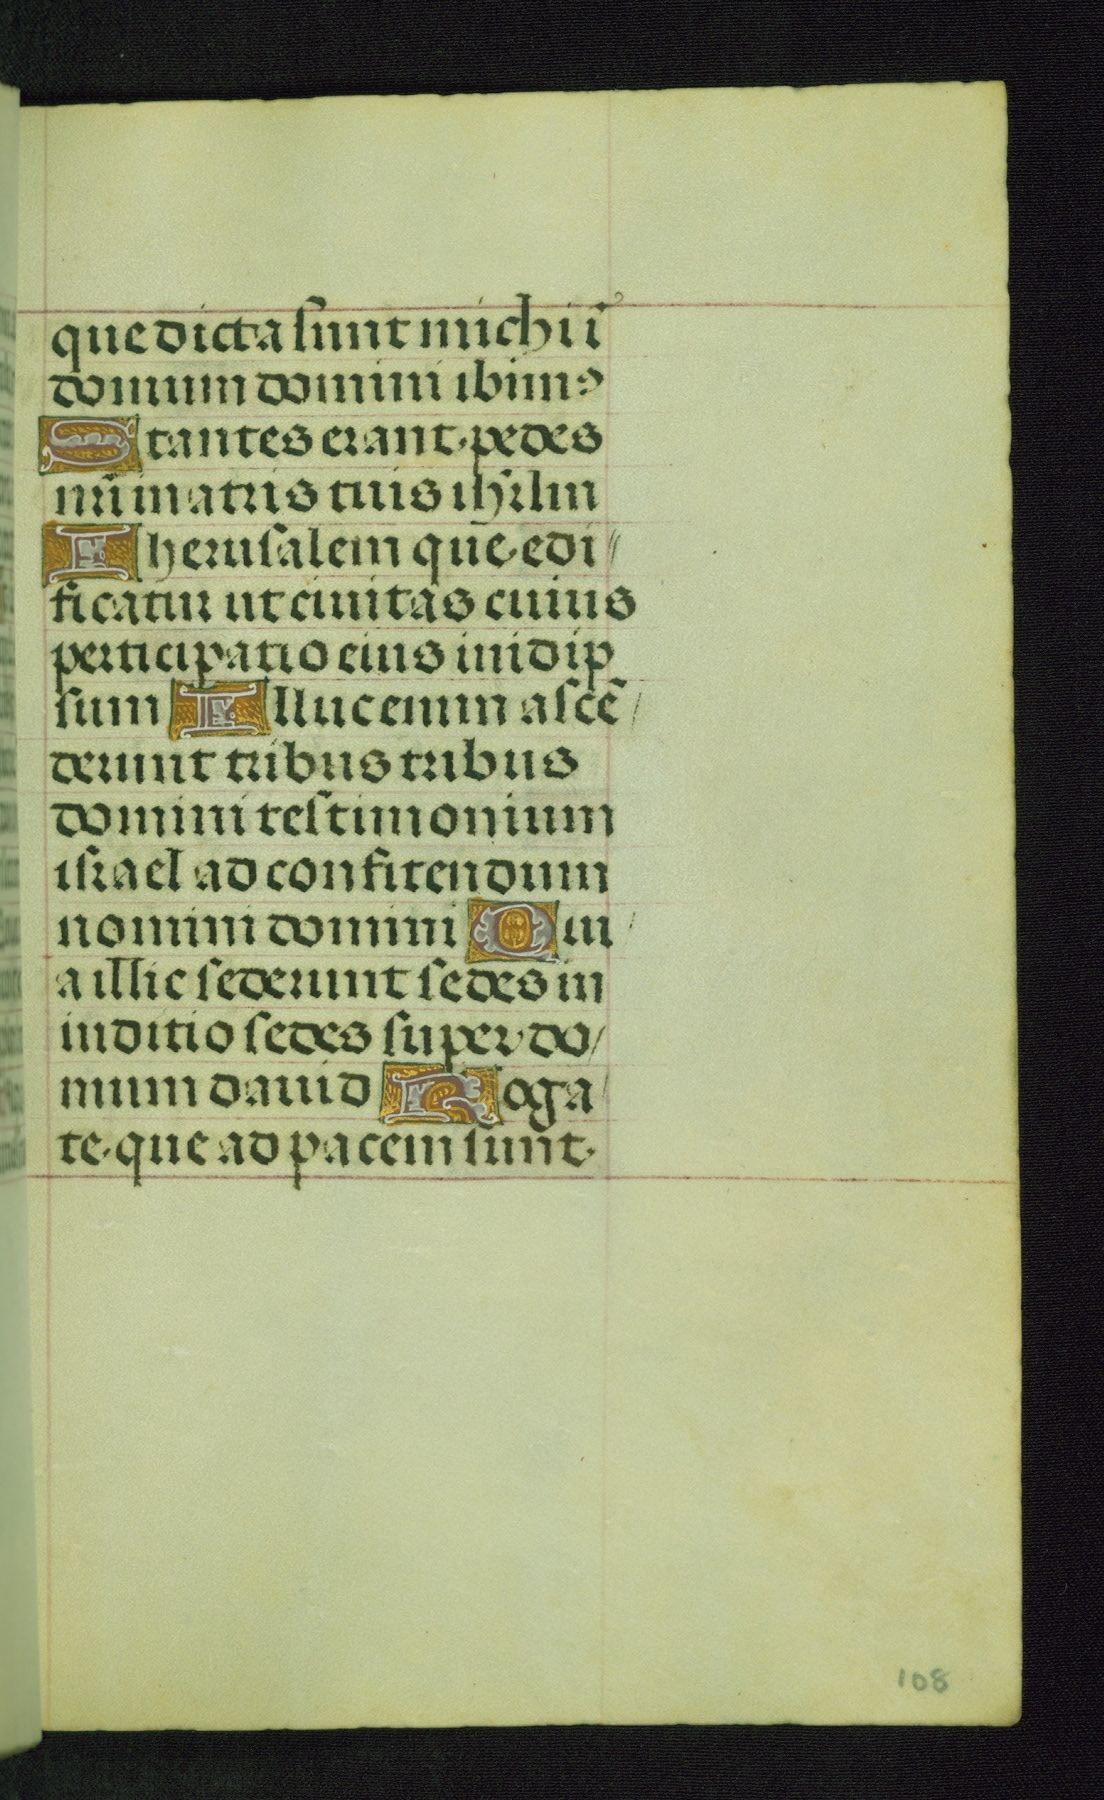 que dicta sunt michi ī
domum domini ibimꝰ
Stantes erant pedes
nr̄i in atris tuis ihr̄lm
Iherusalem que edi//
ficatur ut civitas cuius
perticipatio eius in idip
sum Illuc enim ascē/
derunt tribus tribus
domini testimonium
israel ad confitendum
nomini domini Qui/
a illic sederunt sedes in
inditio sedes super do/
mum david Roga/
te que ad pacem sunt
108